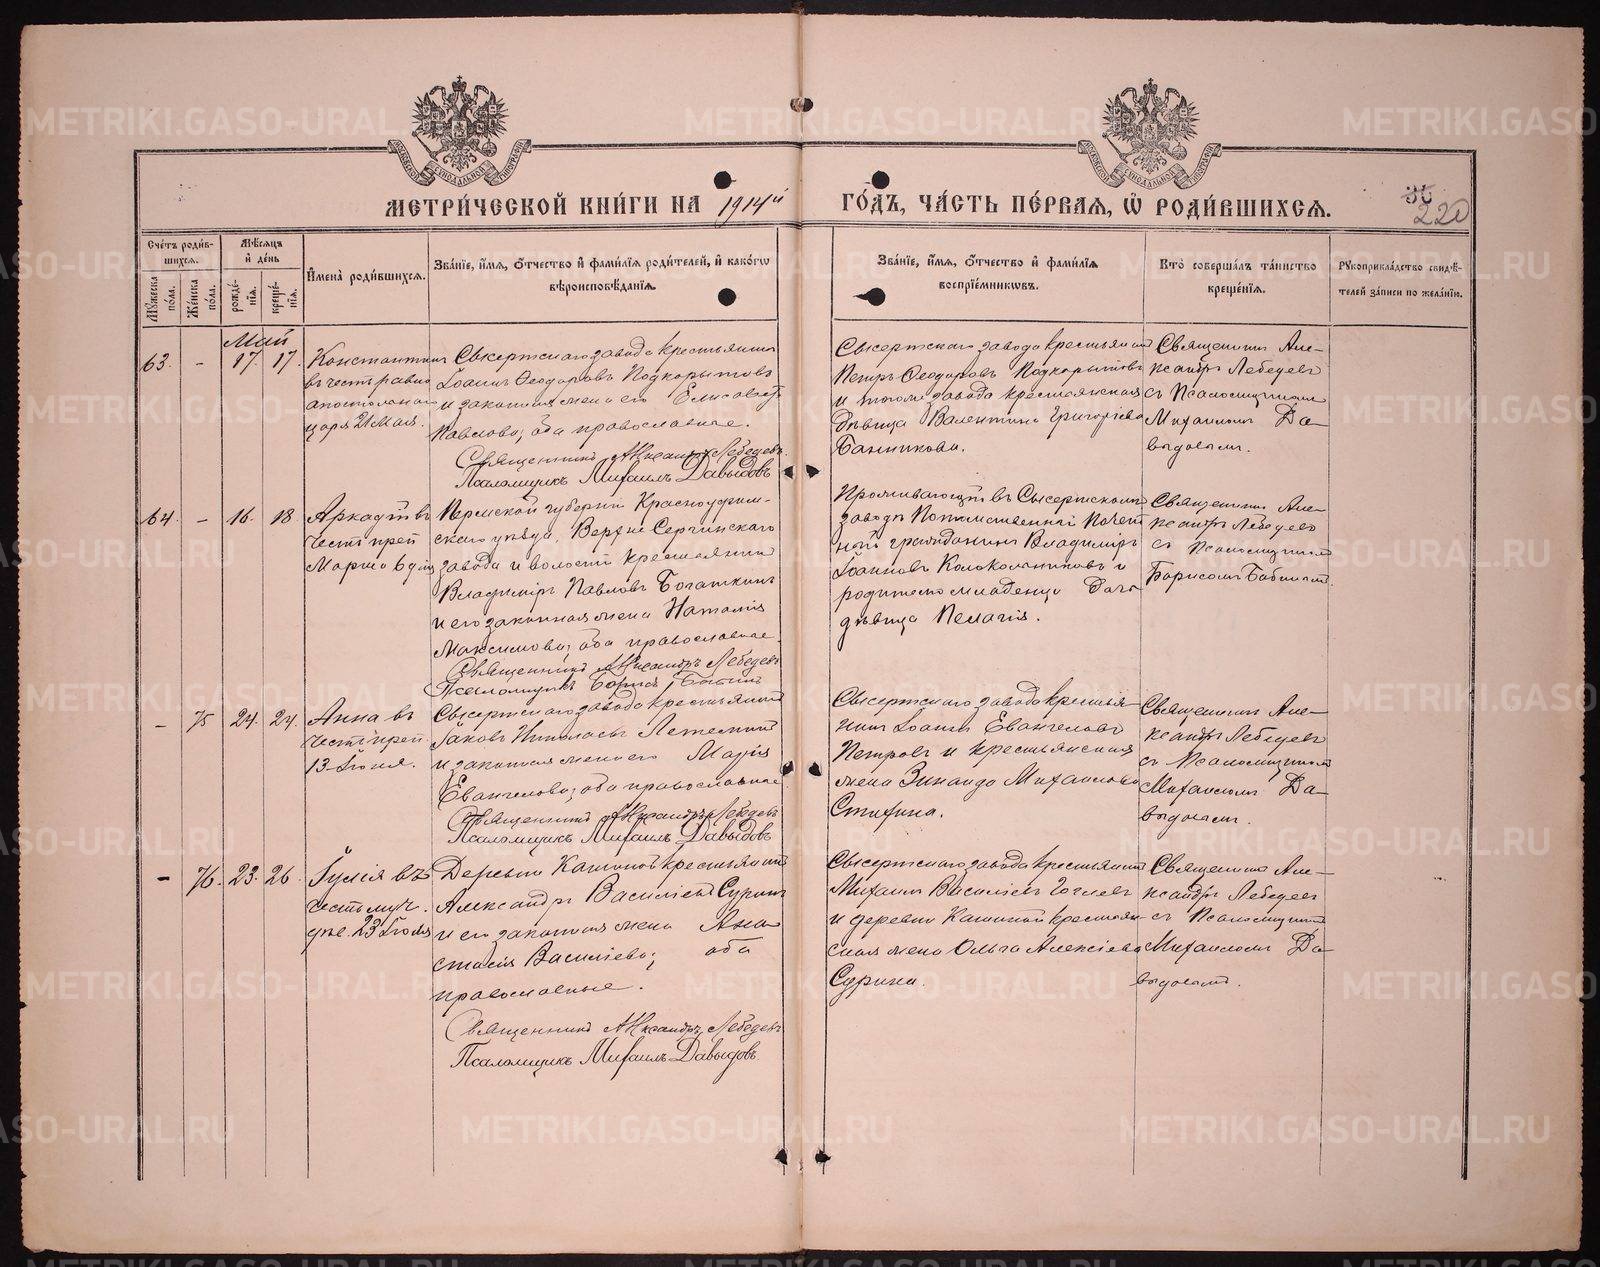 МЕТРИЧЕСКОЙ КНИГИ НА 1914й ГОДЪ, ЧАСТЬ ПЕРВАЯ, Ѡ РОДИВШИХСЯ.
36
220
Счетъ родив-
шихся.
Мужеска пола.
Женска пола.
Мѣсяцъ
и день
рожденія.
крещенія.
Имена родившихся.
Званіе, имя, отчество и фамилія родителей, и какогѡ
вѣроисповѣданія.
Званіе, имя, отчество и фамилія
воспріемниковъ.
Кто совершалъ таинство
крещенія.
Рукоприкладство свидѣ-
телей записи по желанію.
Май
63. - 17. 17.
Константинъ
въ честь равно
апостольнаго
царя 21 Мая.
Сысертскаго завода крестьянинъ
Іоаннъ Ѳеодоровъ Подкорытовъ
и законная жена его Елисавета
Павлова; оба православные.
Священникъ Александръ Лебедевъ
Псаломщикъ Михаилъ Давыдовъ
Сысертскаго завода крестьянинъ
Петръ Ѳеодоровъ Подкорытовъ
и тогоже завода крестьянская
дѣвица Валентина Григорьева
Банникова.
Священникъ Але-
ксандръ Лебедевъ
съ Псаломщикомъ
Михаиломъ Да-
выдовымъ.
64. - 16. 18
Аркадій въ
честь преп.
Марта 6 дня
Пермской губерніи Красноуфим-
скаго уѣзда, Верхне Сергинскаго
завода и волости крестьянинъ
Владиміръ Павловъ Богаткинъ
и его законная жена Наталія
Максимова; оба православные
Священникъ Александръ Лебедевъ
Псаломщикъ Борисъ Бабинъ
Проживающій въ Сысертскомъ
заводѣ Потомственный Почет
ный гражданинъ Владиміръ
Іоанновъ Колокольниковъ и
родителя младенца Дочь
дѣвица Пелагія.
Священникъ Але-
ксандръ Лебедевъ
съ Псаломщикомъ
Борисомъ Бабинымъ.
- 75 24. 24.
Анна въ
честь преп.
13 Іюня.
Сысертскаго завода крестьянинъ
Іаковъ Николаевъ Летеминъ
и законная жена его Марія
Евангелова; оба православные
Священникъ Александръ Лебедевъ
Псаломщикъ Михаилъ Давыдовъ
Сысертскаго завода крестья-
нинъ Іоаннъ Евангеловъ
Петровъ и крестьянская
жена Зинаида Михаилова
Стихина.
Священникъ Але-
ксандръ Лебедевъ
съ Псаломщикомъ
Михаиломъ Да-
выдовымъ.
- 76. 23. 26.
Іулія въ
честь муч.
дне. 23 Іюля
Деревни Кашиной крестьянинъ
Александръ Василіевъ Суринъ
и его законная жена Ана
стасія Василіева; оба
православные.
Священникъ Александръ Лебедевъ
Псаломщикъ Михаилъ Давыдовъ
Сысертскаго завода крестьянинъ
Михаилъ Василіевъ
и деревни Кашиной крестьян
ская жена Ольга Алексіева
Сурина.
Священникъ Але-
ксандръ Лебедевъ
съ Псаломщикомъ
Михаиломъ Да
выдовымъ.
METRIKI.GASO-URAL.RU